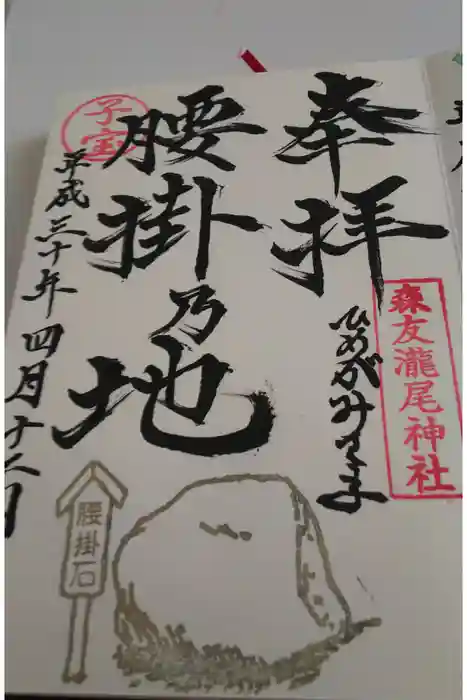 奉拝
森友瀧尾神社
ひめがみさま
腰掛乃地
子宝
平成三十年四月十二日
腰掛石